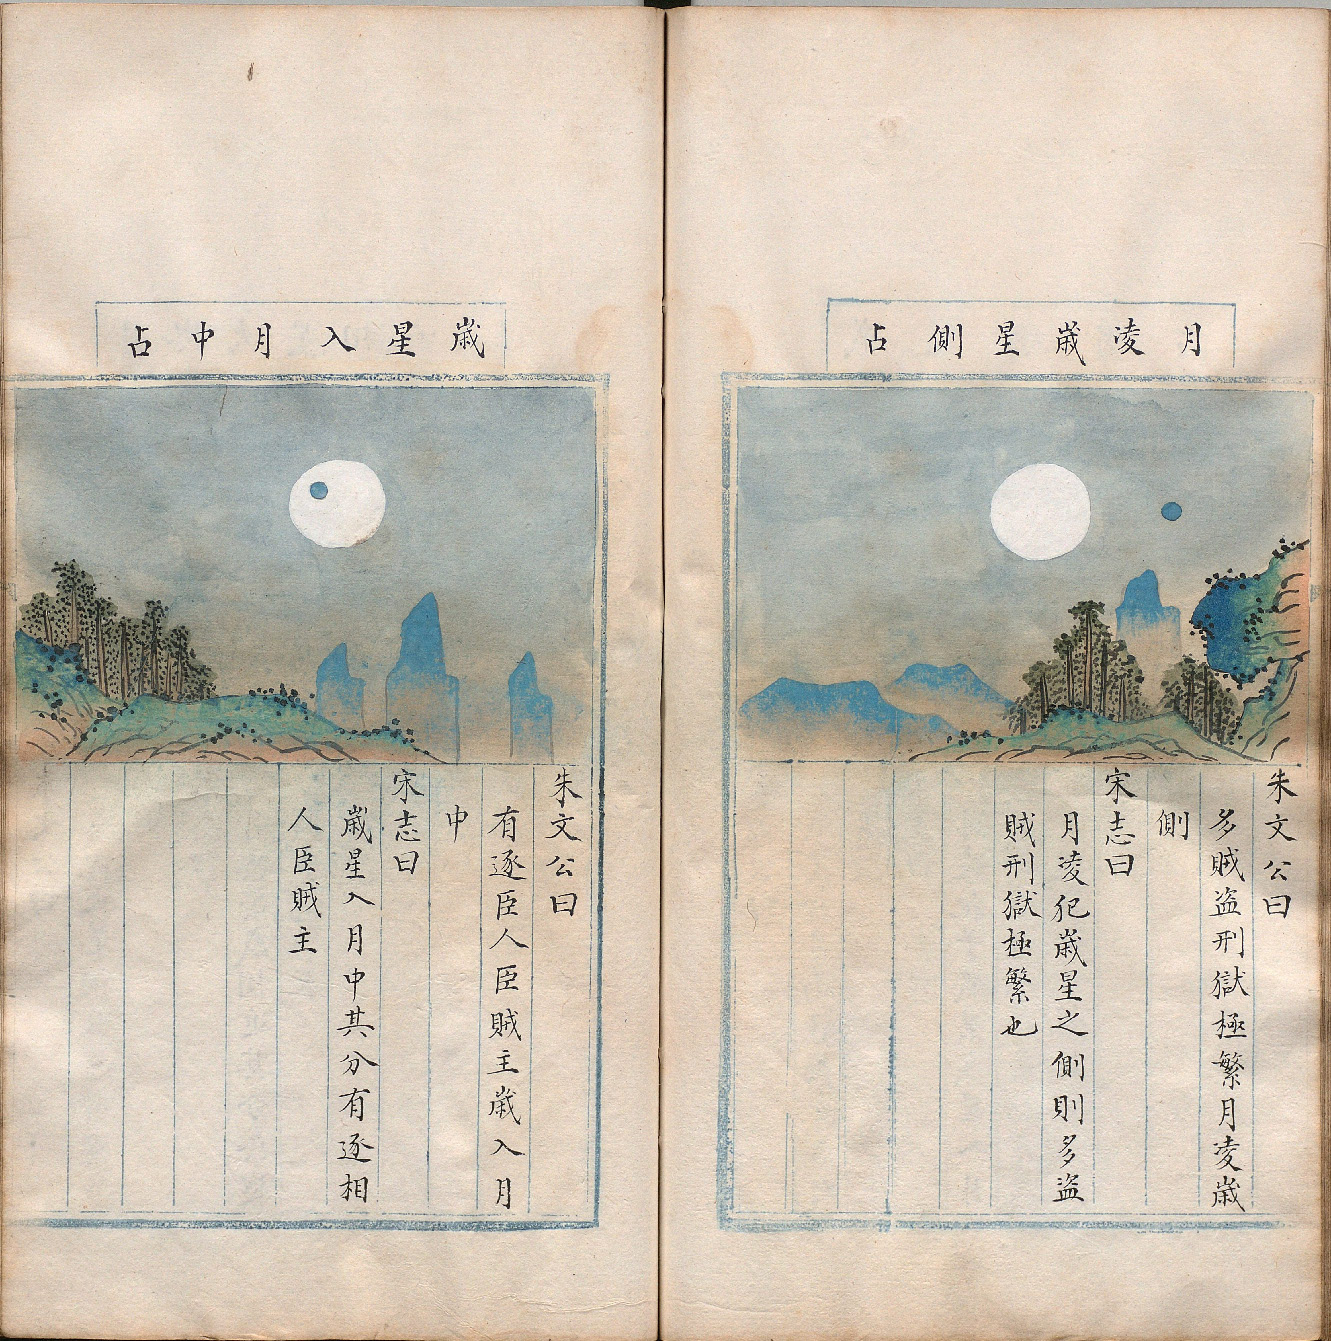 月凌歳星側占
朱文公曰
多賊盗刑獄極繁月凌歳
側
宋志曰
月凌犯歳星之側則多盗
賊刑獄極繁也
歳星入月中占
朱文公曰
有逐臣人臣賊主歳入月
中
宋志曰
歳星入月中其分有逐相
人臣賊主